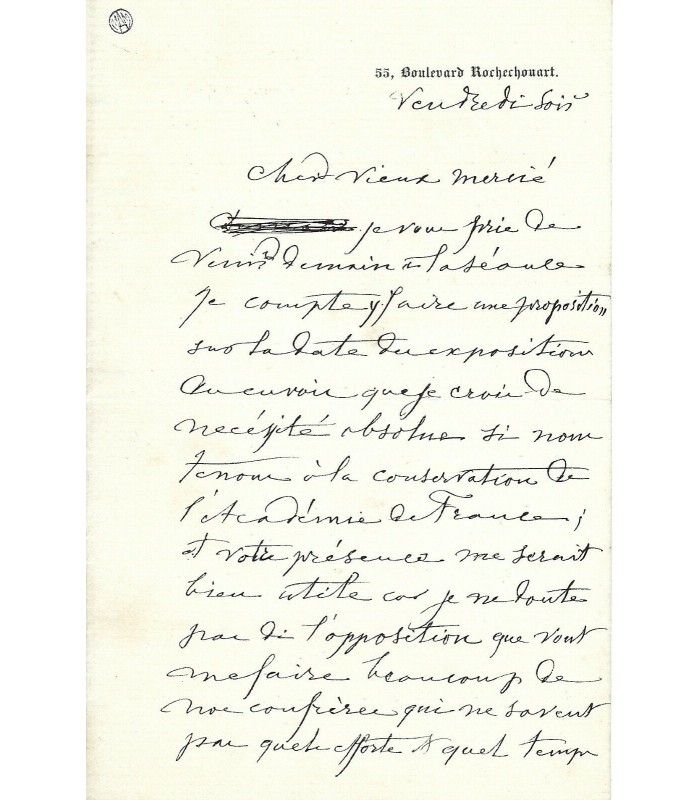 55, Boulevard Rochechouart.
Vendredi soir
Cher vieux mercié
je vous prie de
venir demain à la séance
je compte y faire une proposition
sur la date des expositions
que je crois de
necéssité absolue si nous
tenons à la conservation de
l'Académie de France ;
et votre présence me serait
bien utile car je ne doute
pas de l'opposition que vont
me faire beaucoup de
nos confrères qui ne savent
pas quels efforts et quel temps